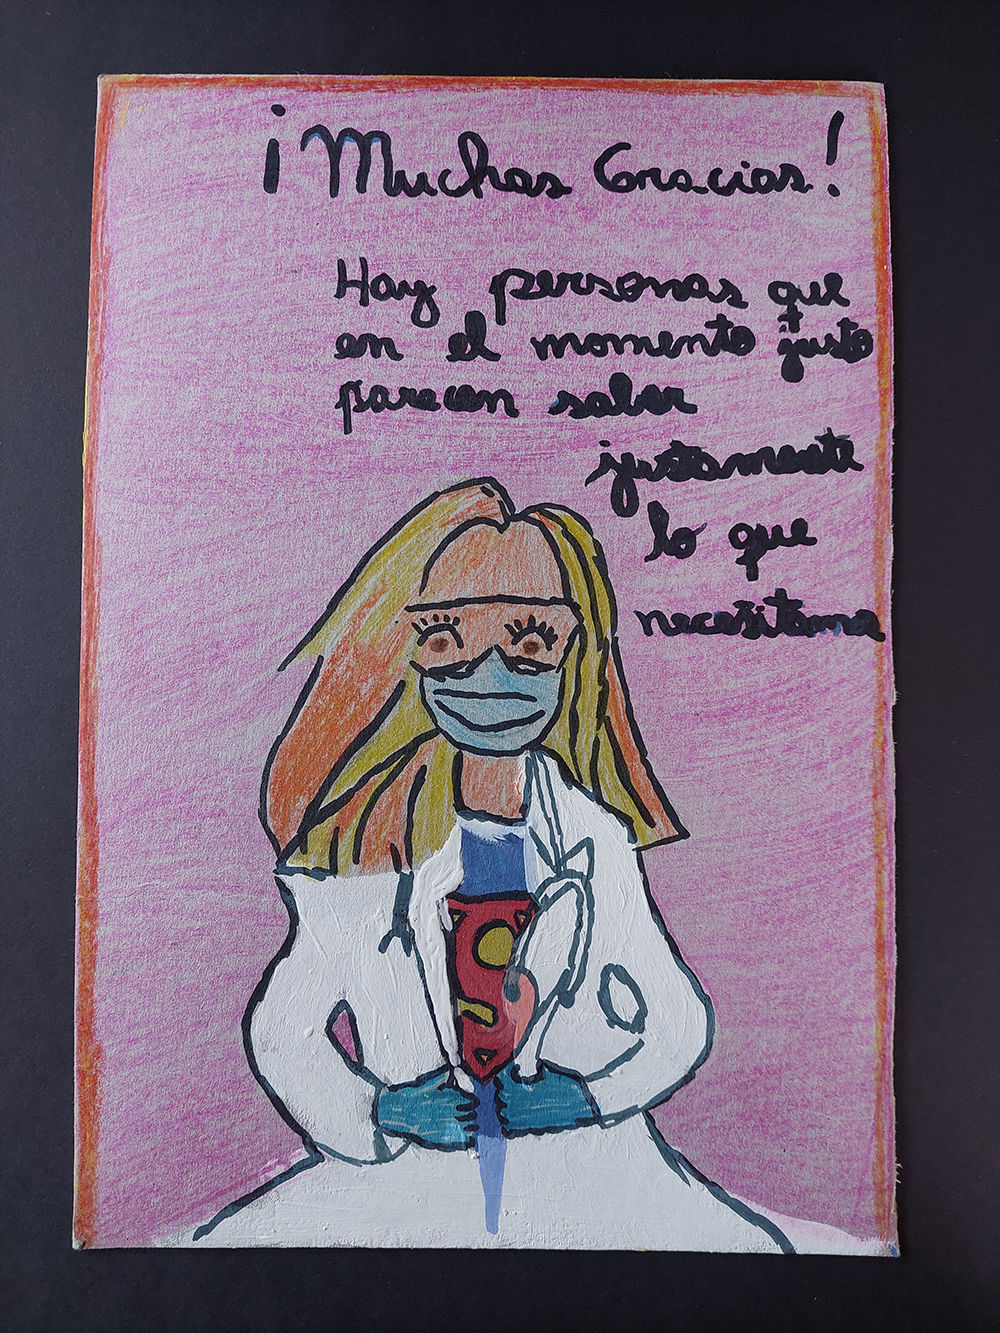 ¡Muchas Gracias!
Hay personas que
en el momento justo
parecen saber
justamente
lo que
necesitamos
S